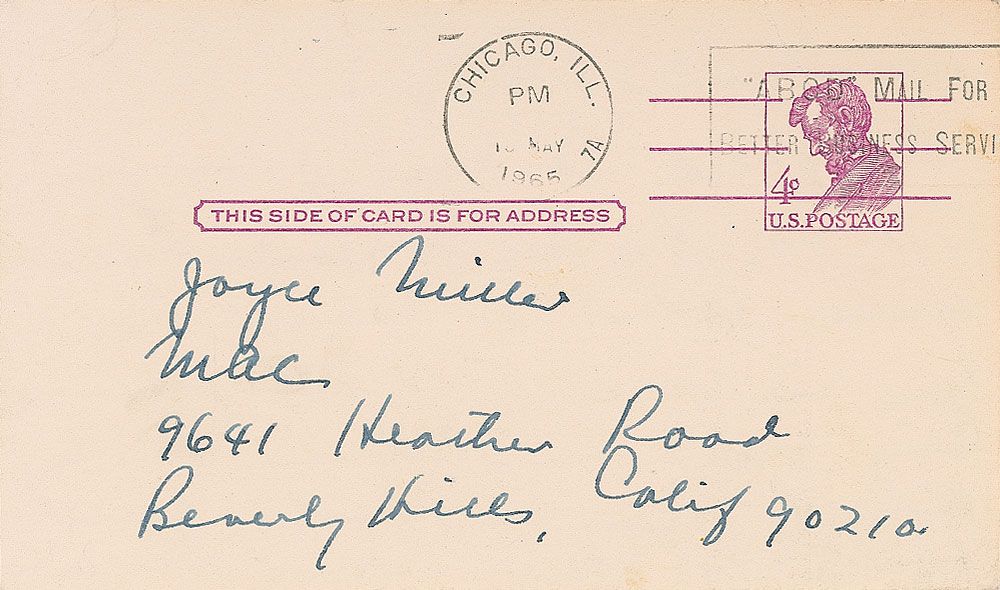 CHICAGO, ILL.
PM
MAY
1965
7A
"ABCD" MAIL FOR
BETTER BUSINESS SERVI
4c
U.S. POSTAGE
THIS SIDE OF CARD IS FOR ADDRESS
Joyce Miller
Mac
9641 Heather Road
Beverly Hills, Calif 90210